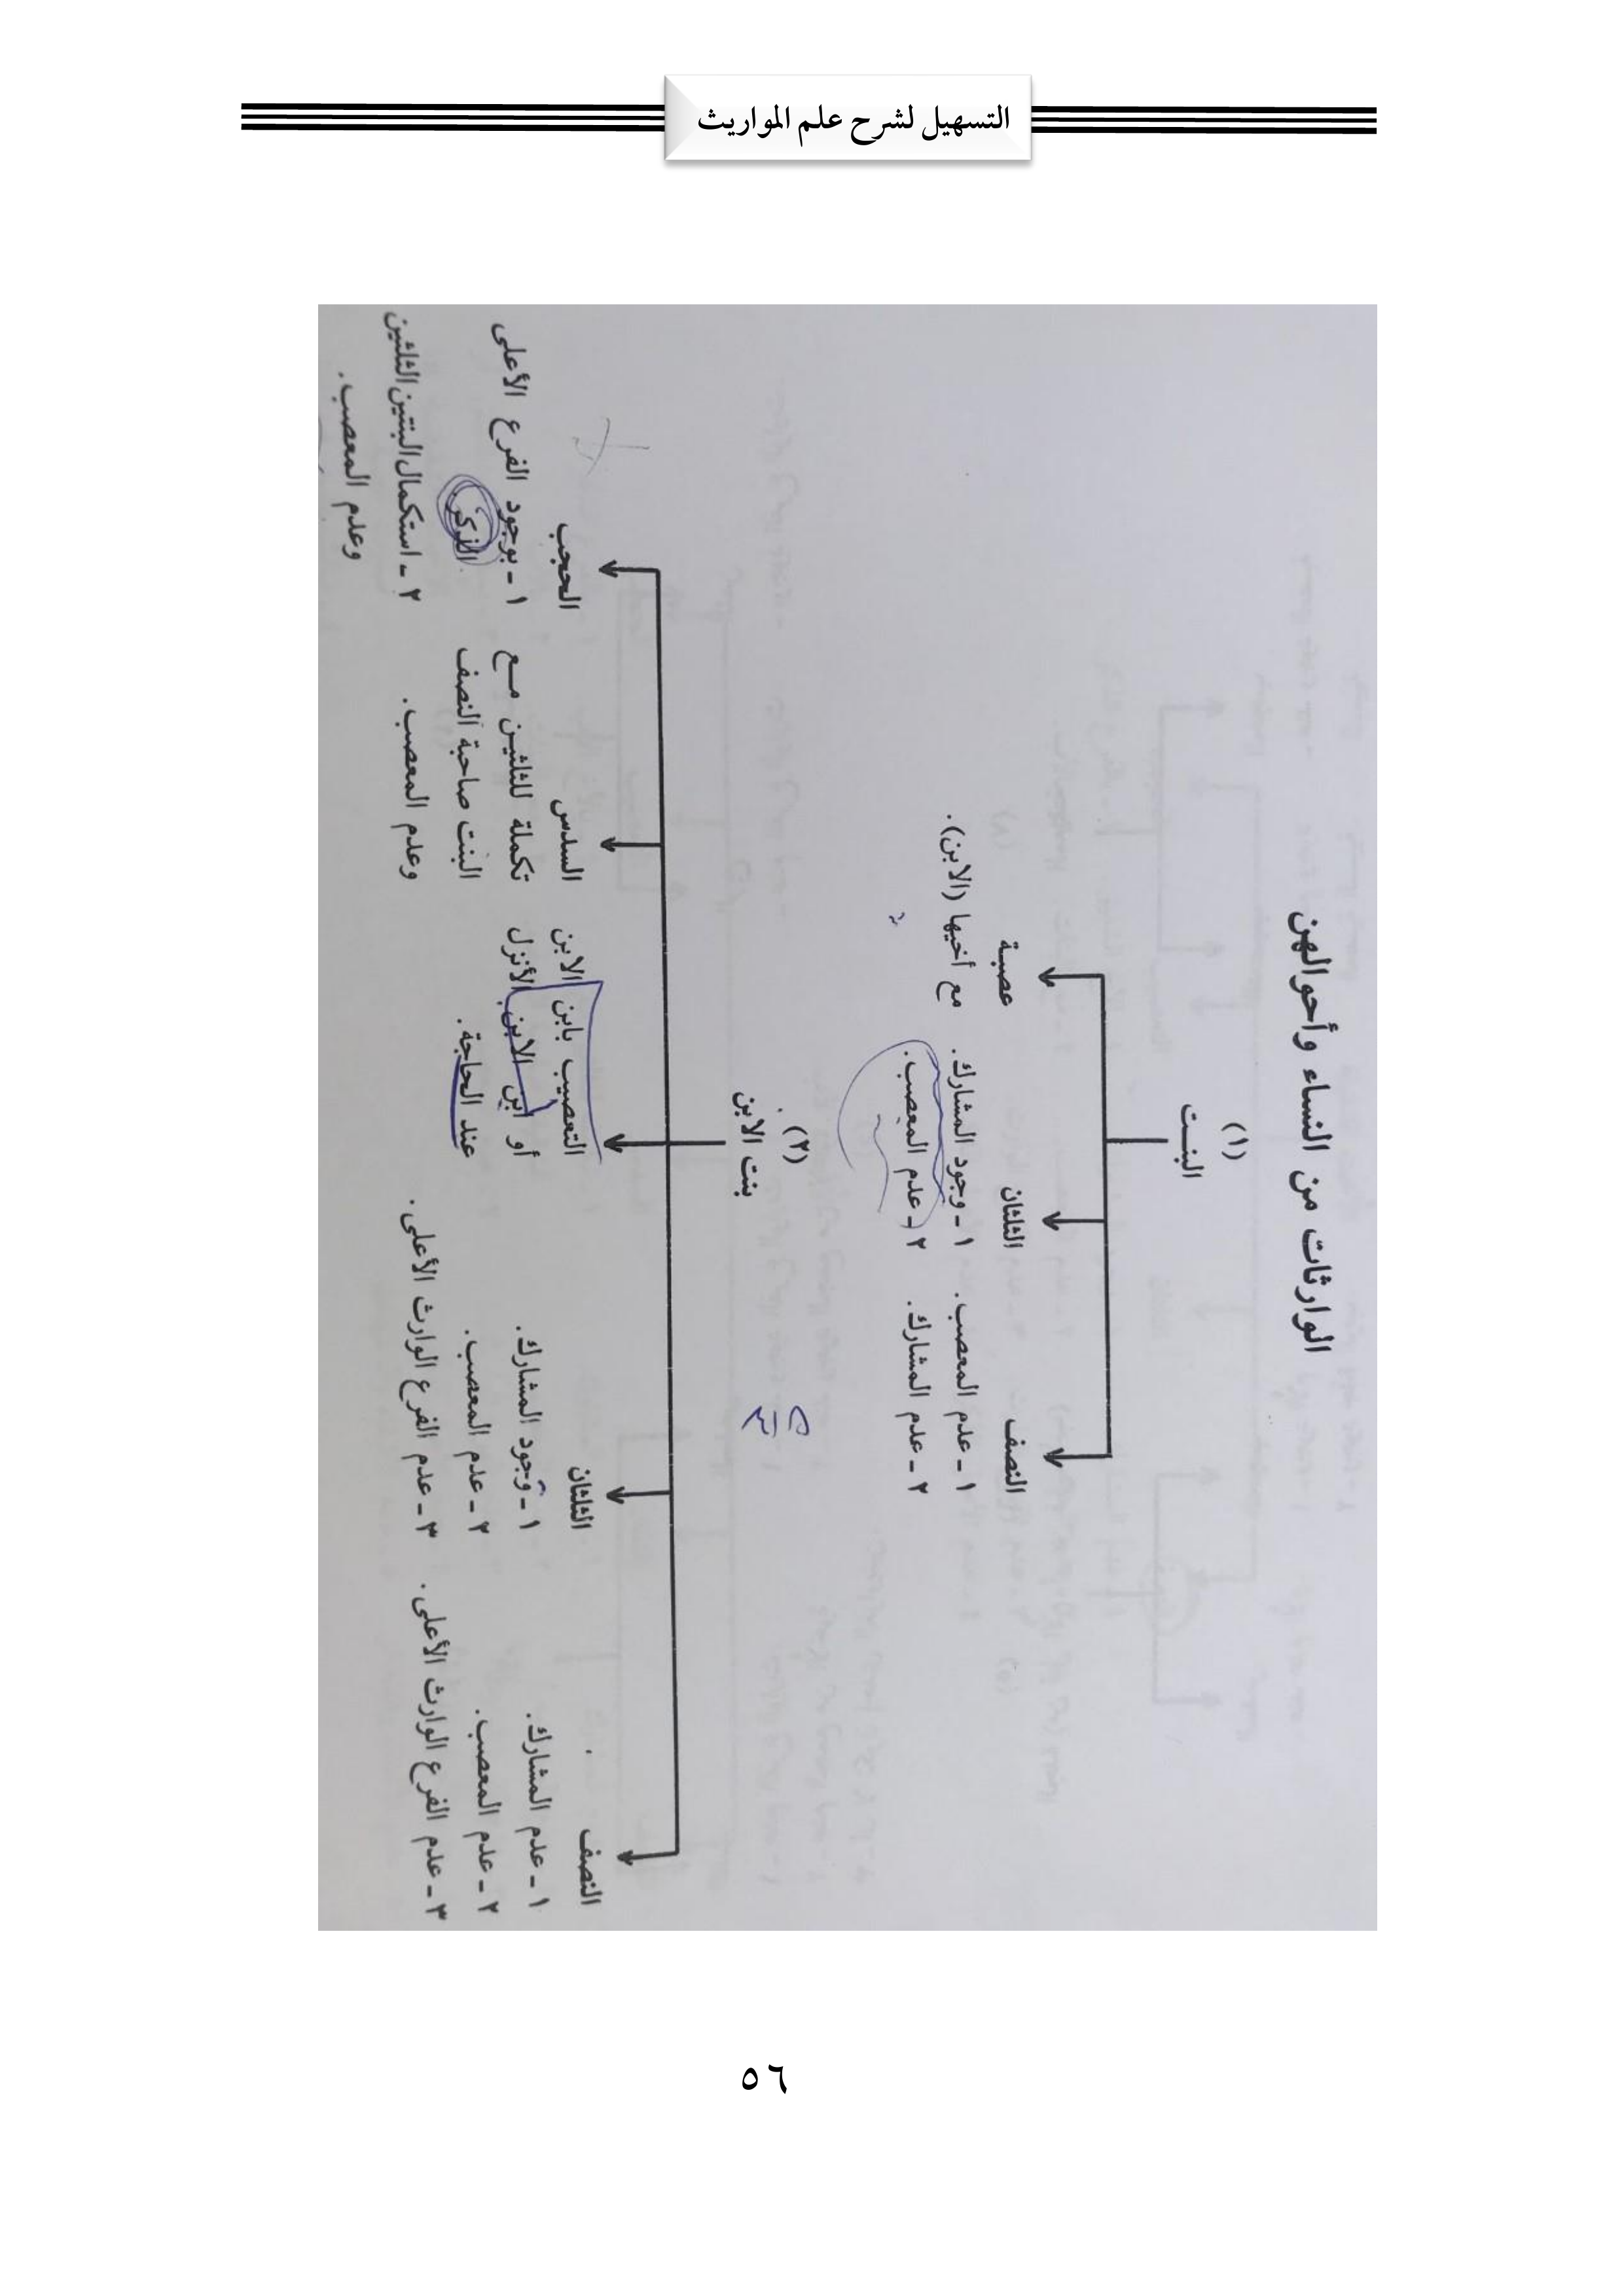 التسهيل لشرح علم المواريث
الوارثات من النساء وأحوالهن
(١)
البنـت
النصف
١ - عدم المعصب.
٢ - عدم المشارك.
الثلثان
١ - وجود المشارك.
٢ - عدم المعصب.
عصبة
مع أخيها (الابن).
(٢)
بنت الابن
النصف
١ - عدم المشارك.
٢ - عدم المعصب.
٣ - عدم الفرع الوارث الأعلى.
الثلثان
١ - وجود المشارك.
٢ - عدم المعصب.
٣ - عدم الفرع الوارث الأعلى.
التعصيب بابن الابن
أو ابن الابن الأنزل
عند الحاجة.
السدس
تكملة للثلثين مع
البنت صاحبة النصف
وعدم المعصب.
الحجب
١ - بوجود الفرع الأعلى
الذكر.
٢ - استكمال البنتين الثلثين
وعدم المعصب.
٥٦